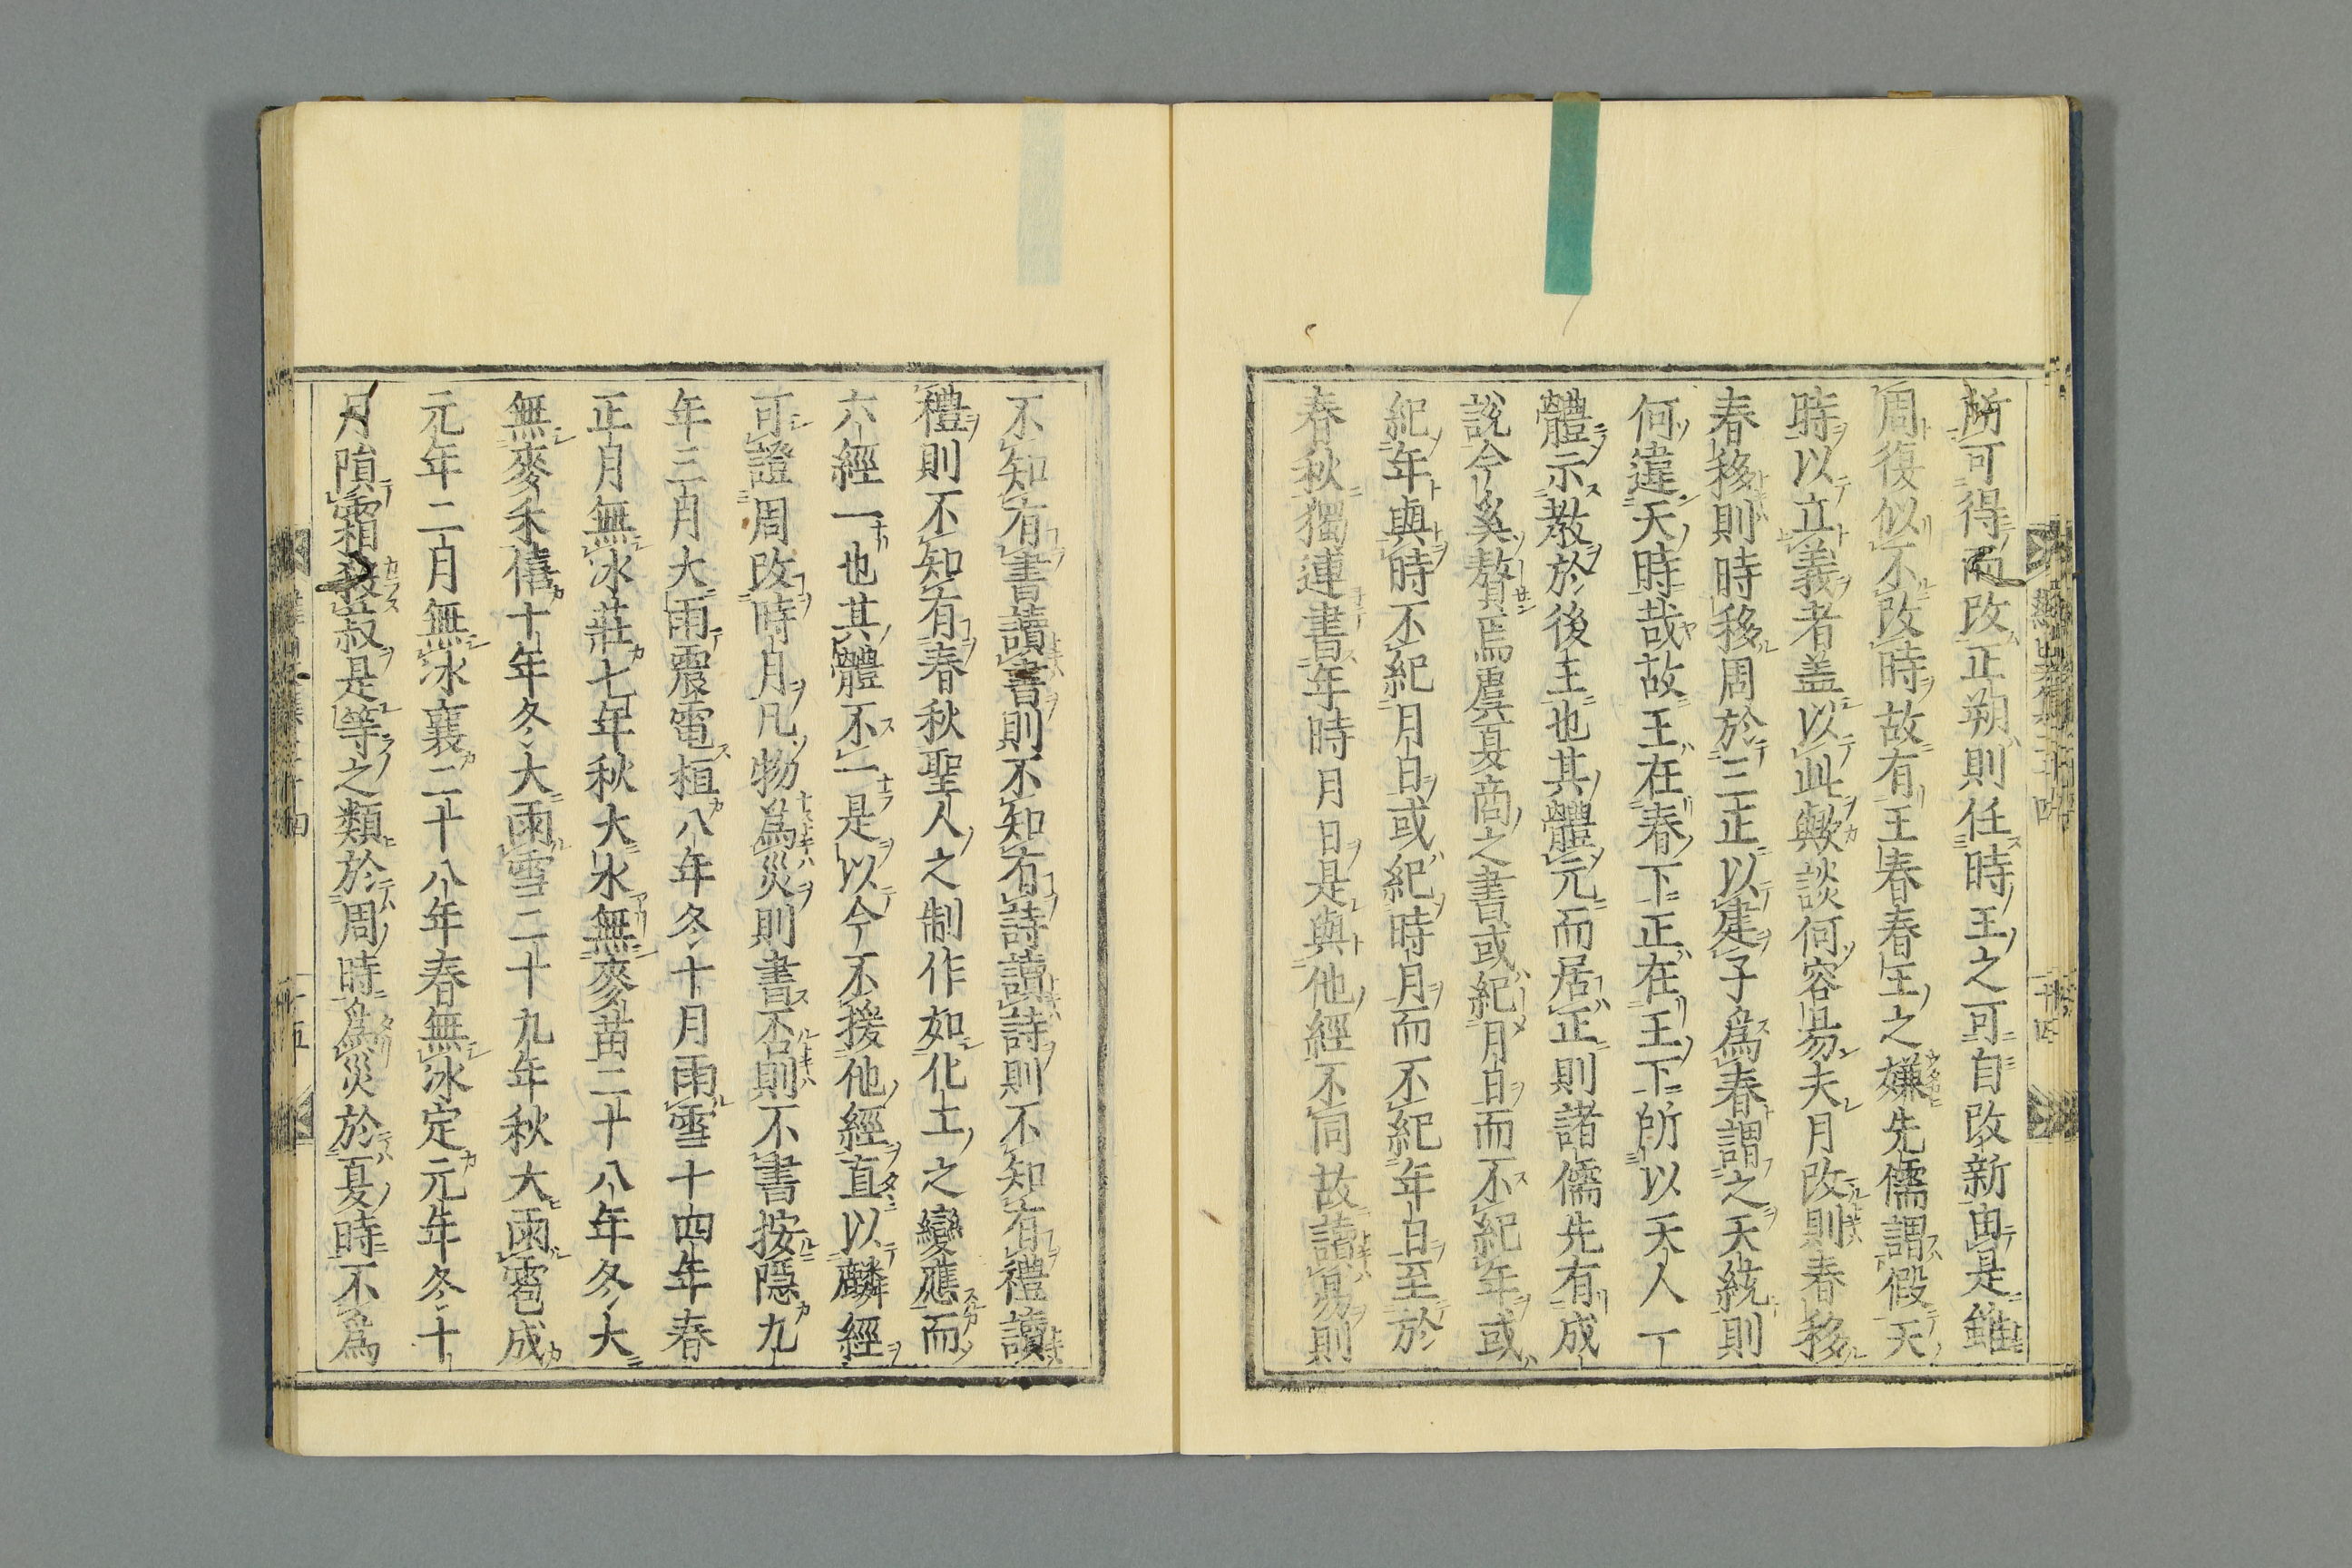 所可得而改正朔則任時王之可自改新由是雖
周復似不改時故有王春春王之嫌先儒謂假天
時以立義者盖以此歟談何容易夫月改則春移
春移則時移周於三正以建子為春謂之天統則
何違天時哉故王在春下正在王下所以天人一
體示教於後主也其體元而居正則諸儒先有成
說今奚贅焉虞夏商之書或紀月日而不紀年或
紀年與時不紀月日或紀時月而不紀年日至於
春秋獨連書年時月日是與他經不同故讀易則
不知有書讀書則不知有詩讀詩則不知有禮讀
禮則不知有春秋聖人之制作如化工之變應而
六經一也其體不一是以今不援他經直以麟經
可證周改時月凡物為災則書否則不書按隱九
年三月大雨震電桓八年冬十月雨雪十四年春
正月無冰莊七年秋大水無麥苗二十八年冬大
無麥禾僖十年冬大雨雪二十九年秋大雨雹成
元年二月無冰襄二十八年春無冰定元年冬十
月隕霜殺菽是等之類於周時為災於夏時不為